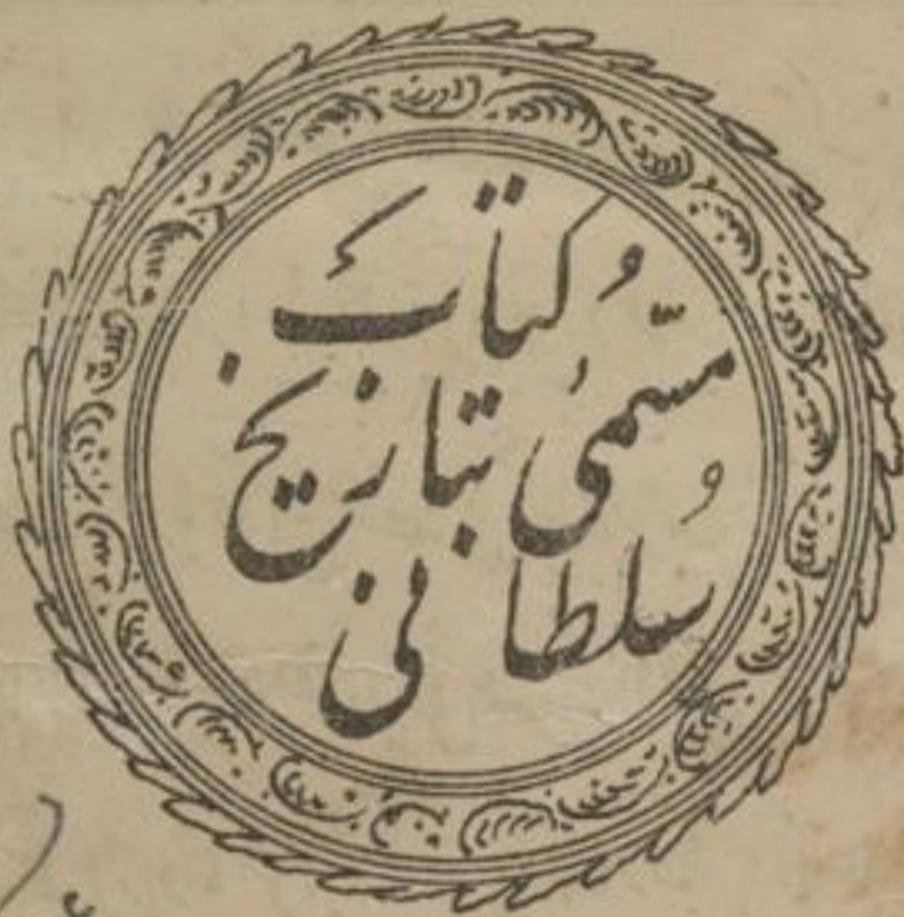 کتاب
مسمّیٰ بتاریخ
سُلطانی